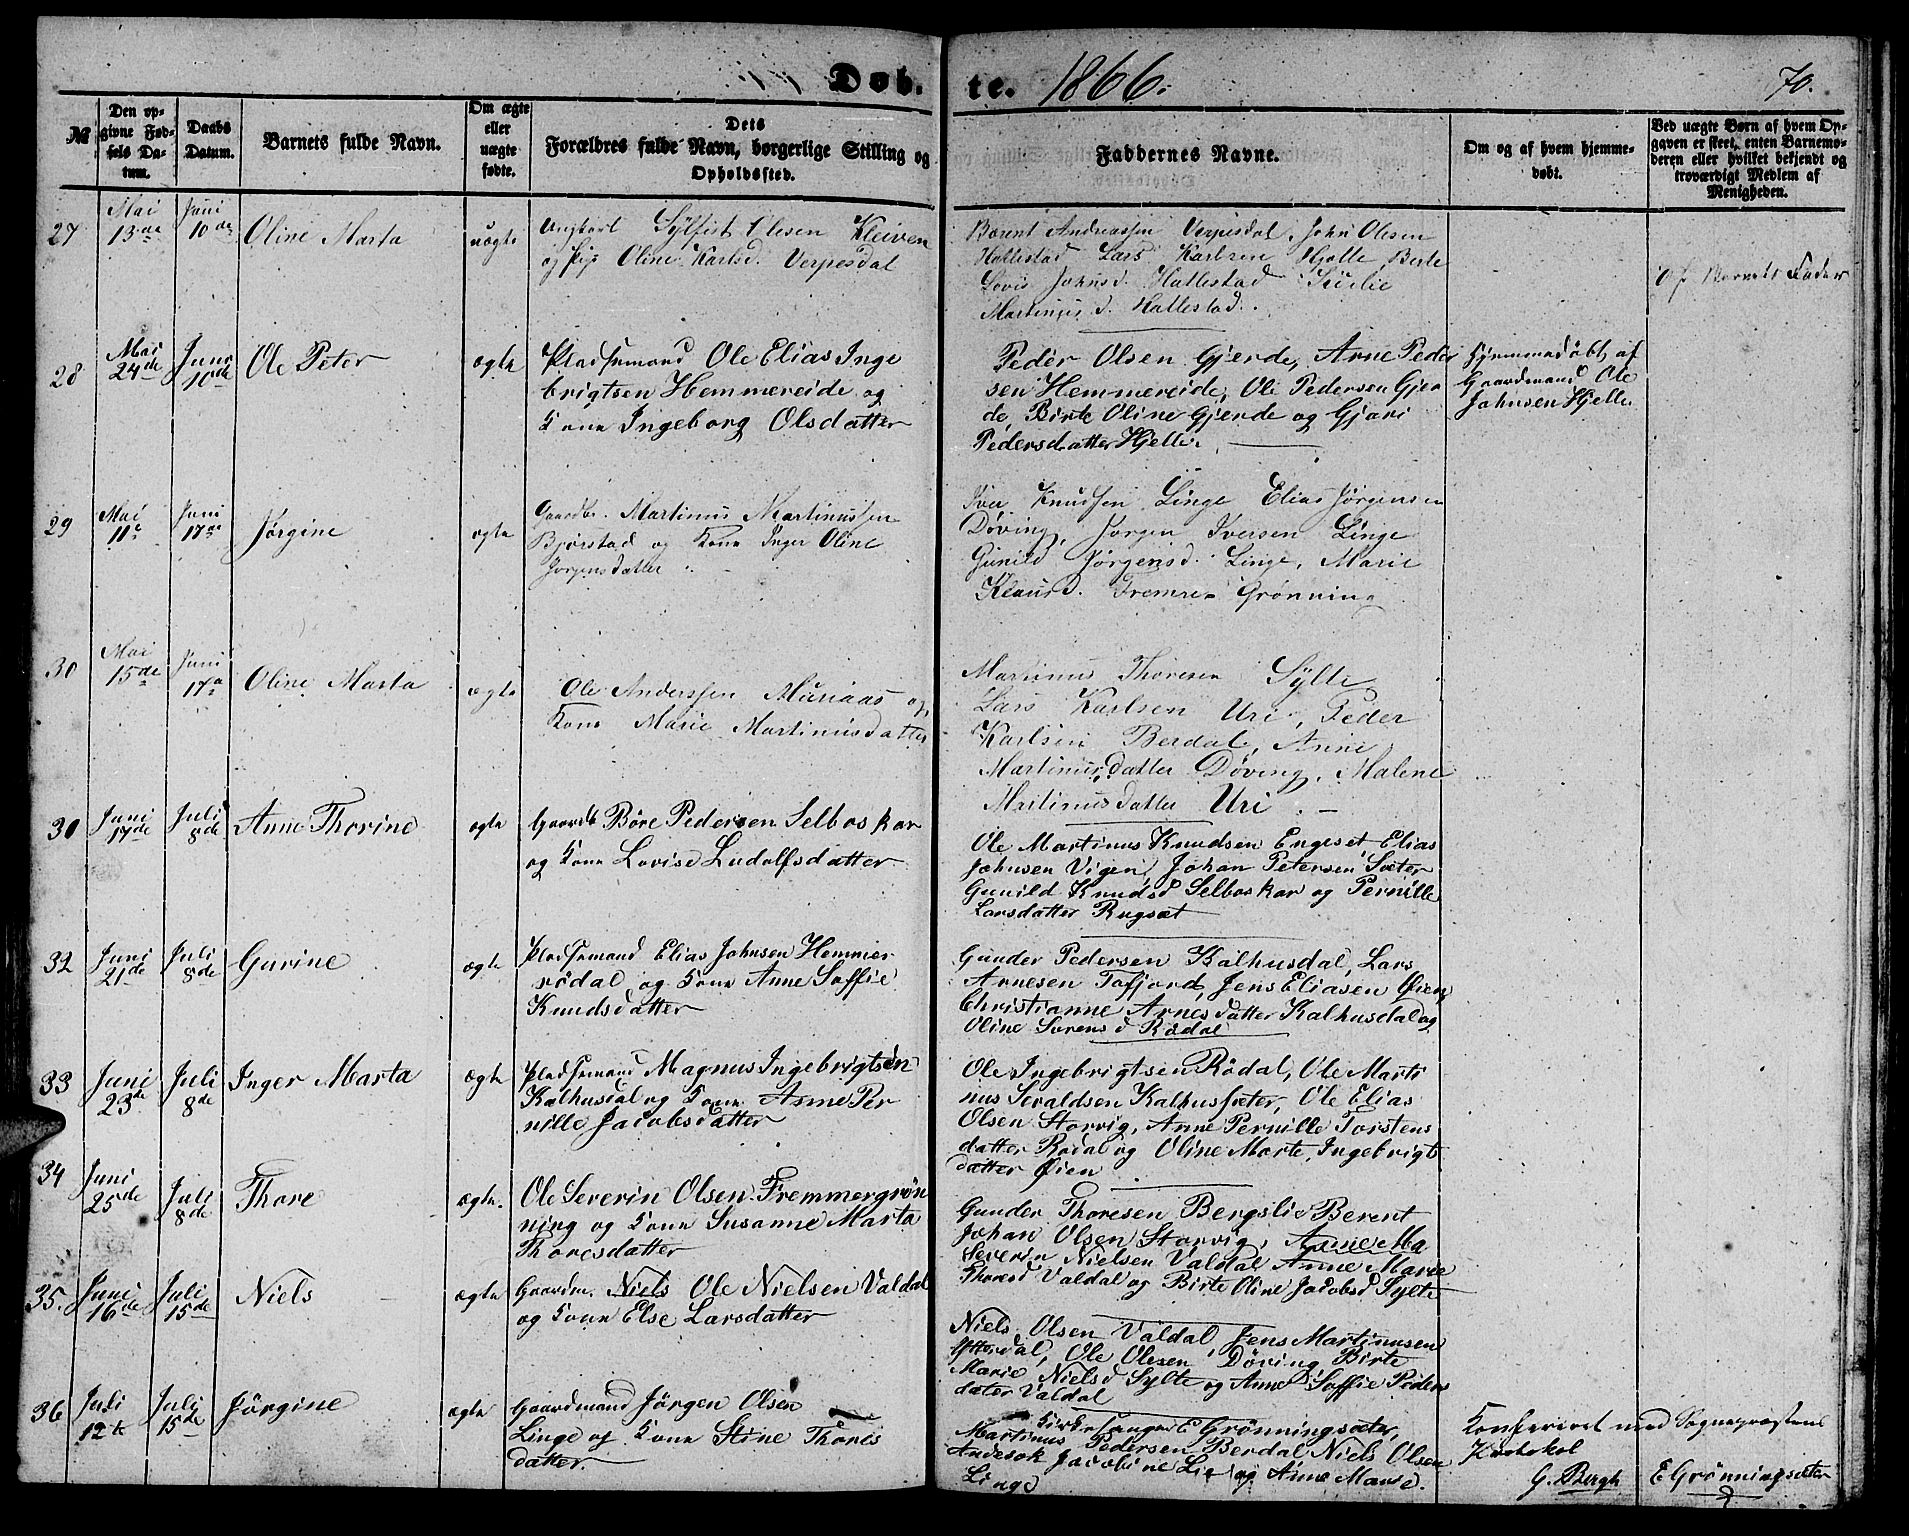 Døb. te. 1866. 70.
№ | Den opgivne Fødsels Datum. | Daabs Datum. | Barnets fulde Navn. | Om ægte eller uægte fødte. | Dets Forældres fulde Navn, borgerlige Stilling og Opholdssted. | Faddernes Navne. | Om og af hvem hjemmedøbt. | Ved uægte Børn af hvem Opgaven er skeet, enten Barnemoderen eller hvilket bekjendt og troværdigt Medlem af Menigheden.
27 Mai 13de Juni 10de Oline Marta uægte
Ungkarl Sylfest Olesen Kleiven
og Pige Oline Karlsd. Verpesdal
Berent Andreassen Verpesdal, John Olesen
Hallestad Lars Karlsen Hjelle Berte
Lovis Johnsd. Hallestad
Martinusd. Hallestad.
Af Barnets Fader
28 Mai 24de Juni 10de Ole Peter ægte
Pladsemand Ole Elias Inge
brigtsen Hemmereide og
Kone Ingeborg Olsdatter
Peder Olsen Gjerde, Arne Peder
sen Hemmereide, Ole Pedersen Gjer
de, Birte Oline Gjerde og Gjøri
Pedersdatter Hjelle.
Hjemmedøbt af
Gaardmand Ole
Johnsen Hjelle
29 Mai 11te Juni 17de Jørgine ægte
Gaardbr. Martinus Martinussen
Bjørstad og Kone Inger Oline
Jørgensdatter
Iver Knudsen Linge Elias Jørgensen
Døving, Jørgen Iversen Linge
Gunild Jørgensd. Linge, Marie
Klausd. Fremre Grønning
30 Mai 15de Juni 17de Oline Marta ægte
Ole Anderssen Muriaas og
Kone Marie Martinusdatter
Martinus Thoresen Sylte
Lars Karlsen Uri, Peder
Karlsen Berdal, Anne
Martinusdatter Døving, Malene
Martinusdatter Uri.
30 Juni 17de Juli 8de Anne Thorine ægte
Gaardb. Børe Pedersen Selboskar
og Kone Lovise Ludolfsdatter
Ole Martinus Knudsen Engeset Elias
Johnsen Vigen, Johan Petersen Sæter
Gunild Knudsd Selboskar og Pernille
Larsdatter Rugsæt
32 Juni 21de Juli 8de Gurine ægte
Pladsemand Elias Johnsen Hemmer
rödal og Kone Anne Soffie
Knudsdatter
Gunder Pedersen Kalhusdal, Lars
Arnesen Tafjord, Jens Eliasen Øien,
Christianne Arnesdatter Kalhusdal og
Oline Sørensd Rødal
33 Juni 23de Juli 8de Inger Marta ægte
Pladsemand Magnus Ingebrigtsen
Kalhusdal og Kone Anne Per
nille Jacobsdatter
Ole Ingebrigtsen Rødal, Ole Marti
nus Seraldsen Kalhussæter, Ole Elias
Olsen Storvig, Anne Pernille Torstens
datter Rødal og Oline Marte, Ingebrigt
datter Øien
34 Juni 25de Juli 8de Thore ægte.
Ole Severin Olsen Fremmergrøn
ning og Kone Susanne Marta
Thoresdatter
Gunder Thoresen Bergslie Berent
Johan Olsen Storvig, Anne Ma
Severin Nielsen Valdal Anne Marie
Thoresd Valdal og Birte Oline Jacobsd Sylte
35. Juni 16de Juli 15de Niels ægte
Gaardm. Niels Ole Nielsen Valdal
og Kone Else Larsdatter
Niels Olsen Valdal, Jens Martinusen
Yttredal, Ole Olesen Døving Birte
Marie Nielsd Sylte og Anne Soffie Peders
datter Valdal
36 Juli 12te Juli 15de Jørgine ægte
Gaardmand Jørgen Olsen
Linge og Kone Stine Thores
datter.
Kirkesanger E Grønningsæter,
Martinus Pedersen Berdal, Niels Olsen
Jacobine Lie og Anne Mansd.
Linge
Konfereret med Sognepræstens
Protokol
G. Bergh E Grønningsæter